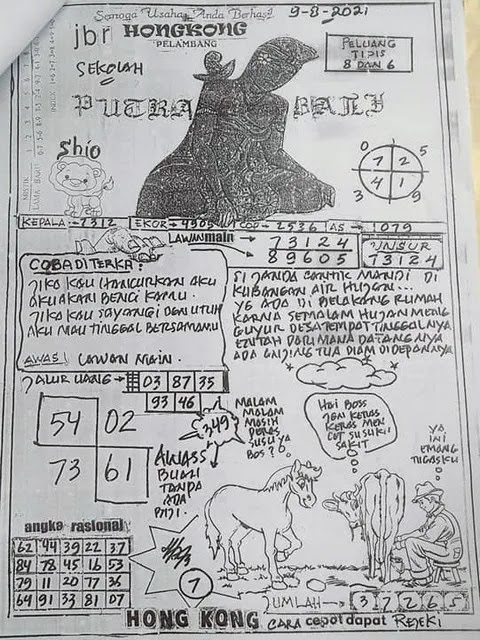 Semoga Usaha Anda Berhasil
9-8-2021
jbr HONGKONG
PELAMBANG
PELUANG
TIPIS
8 DAN 6
SEKOLAH
PUTRA BALI
Shio
0 5
7 2
4 1
3 9
KEPALA → 7312 EKOR → 4905 COP → 2536 AS → 1079
LAWAN main → 73124
89605
UNSUR
73124
COBA DITERKA:
JIKA KAU HANCURKAN AKU
AKU AKAN BENCI KAMU.
JIKA KAU SAYANGI DEN UTUH
AKU MAU TINGGAL BERSAMAMU
AWAS! LAWAN MAIN.
SI JANDA CANTIK MANDI DI
KUBANGAN AIR HUJAN...
YG ADA DI BELAKANG RUMAH
KARNA SEMALAM HUJAN MENG
GUYUR DESA TEMPAT TINGGALNYA
ENTAH DARI MANA DATANG NYA
ADA ANJING TUA DIAM DI DEPANNYA
JALUR UANG → 03 87 35
93 46
349
54 02
73 61
AWASS
BUMI
TANDA
ADA
PADI.
MALAM
MALAM
MASIH
PERAS
SUSU YA
BOS?
HAI BOSS
JGN KERAS
KERAS MEN
COT SUSUKU
SAKIT
YA
INI
EMANG
TUGASKU
angka rasional
62 44 39 22 37
84 78 45 16 53
79 11 20 77 36
64 91 33 81 07
7
JUMLAH → 3 7 2 6 5
HONG KONG CARA cepot dapat REJEKI